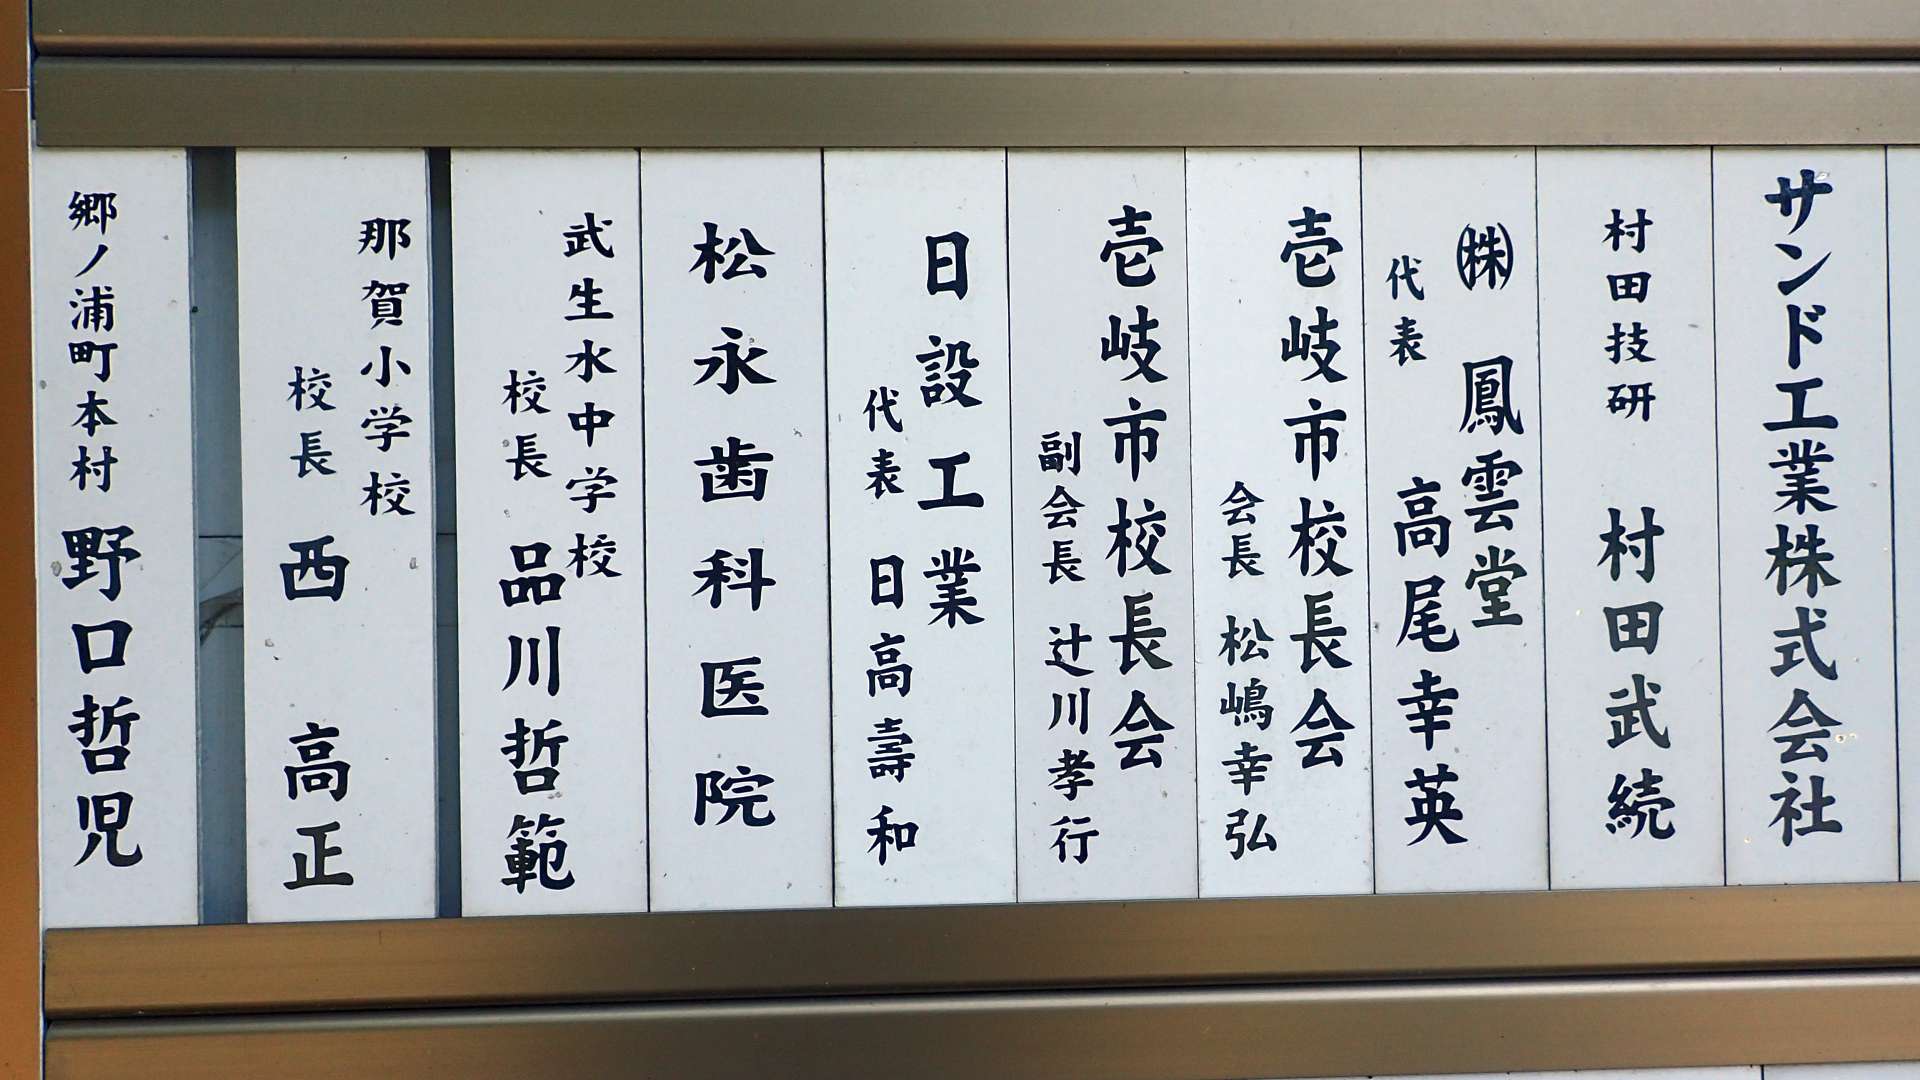 サンド工業株式会社
村田技研 村田武続
㈱鳳雲堂
代表 高尾幸英
壱岐市校長会
会長 松嶋幸弘
壱岐市校長会
副会長 辻川孝行
日設工業
代表 日高壽和
松永歯科医院
武生水中学校
校長 品川哲範
那賀小学校
校長 西高正
郷ノ浦町本村 野口哲児